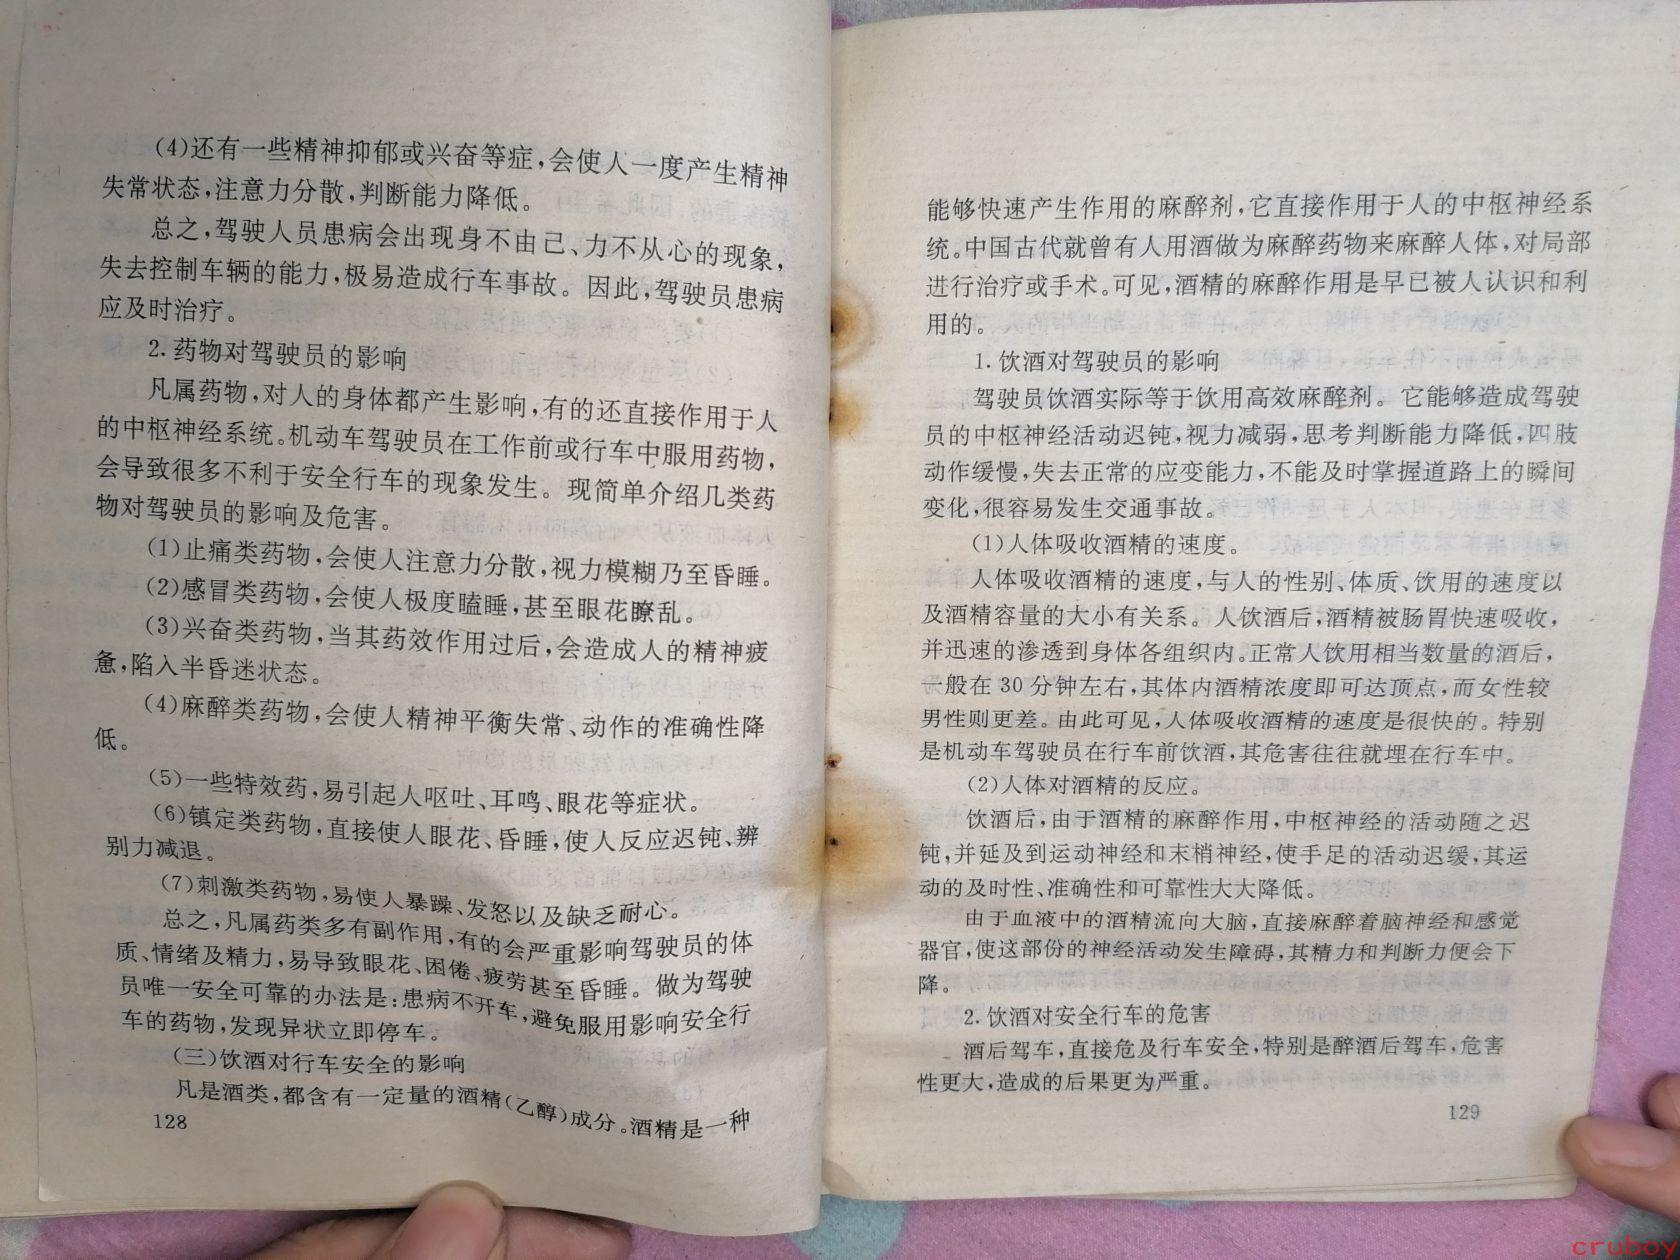 (4)还有一些精神抑郁或兴奋等症,会使人一度产生精神
失常状态,注意力分散,判断能力降低。
总之,驾驶人员患病会出现身不由己、力不从心的现象,
失去控制车辆的能力,极易造成行车事故。因此,驾驶员患病
应及时治疗。
2. 药物对驾驶员的影响
凡属药物,对人的身体都产生影响,有的还直接作用于人
的中枢神经系统。机动车驾驶员在工作前或行车中服用药物,
会导致很多不利于安全行车的现象发生。现简单介绍几类药
物对驾驶员的影响及危害。
(1)止痛类药物,会使人注意力分散,视力模糊乃至昏睡。
(2)感冒类药物,会使人极度瞌睡,甚至眼花瞭乱。
(3)兴奋类药物,当其药效作用过后,会造成人的精神疲
惫,陷入半昏迷状态。
(4)麻醉类药物,会使人精神平衡失常、动作的准确性降
低。
(5)一些特效药,易引起人呕吐、耳鸣、眼花等症状。
(6)镇定类药物,直接使人眼花、昏睡,使人反应迟钝、辨
别力减退。
(7)刺激类药物,易使人暴躁、发怒以及缺乏耐心。
总之,凡属药类多有副作用,有的会严重影响驾驶员的体
质、情绪及精力,易导致眼花、困倦、疲劳甚至昏睡。做为驾驶
员唯一安全可靠的办法是:患病不开车,避免服用影响安全行
车的药物,发现异状立即停车。
(三)饮酒对行车安全的影响
凡是酒类,都含有一定量的酒精(乙醇)成分。酒精是一种
128
能够快速产生作用的麻醉剂,它直接作用于人的中枢神经系
统。中国古代就曾有人用酒做为麻醉药物来麻醉人体,对局部
进行治疗或手术。可见,酒精的麻醉作用是早已被人认识和利
用的。
1. 饮酒对驾驶员的影响
驾驶员饮酒实际等于饮用高效麻醉剂。它能够造成驾驶
员的中枢神经活动迟钝,视力减弱,思考判断能力降低,四肢
动作缓慢,失去正常的应变能力,不能及时掌握道路上的瞬间
变化,很容易发生交通事故。
(1)人体吸收酒精的速度。
人体吸收酒精的速度,与人的性别、体质、饮用的速度以
及酒精容量的大小有关系。人饮酒后,酒精被肠胃快速吸收,
并迅速的渗透到身体各组织内。正常人饮用相当数量的酒后,
一般在 30 分钟左右,其体内酒精浓度即可达顶点,而女性较
男性则更差。由此可见,人体吸收酒精的速度是很快的。特别
是机动车驾驶员在行车前饮酒,其危害往往就埋在行车中。
(2)人体对酒精的反应。
饮酒后,由于酒精的麻醉作用,中枢神经的活动随之迟
钝,并延及到运动神经和末梢神经,使手足的活动迟缓,其运
动的及时性、准确性和可靠性大大降低。
由于血液中的酒精流向大脑,直接麻醉着脑神经和感觉
器官,使这部份的神经活动发生障碍,其精力和判断力便会下
降。
2. 饮酒对安全行车的危害
酒后驾车,直接危及行车安全,特别是醉酒后驾车,危害
性更大,造成的后果更为严重。
129
cruboy